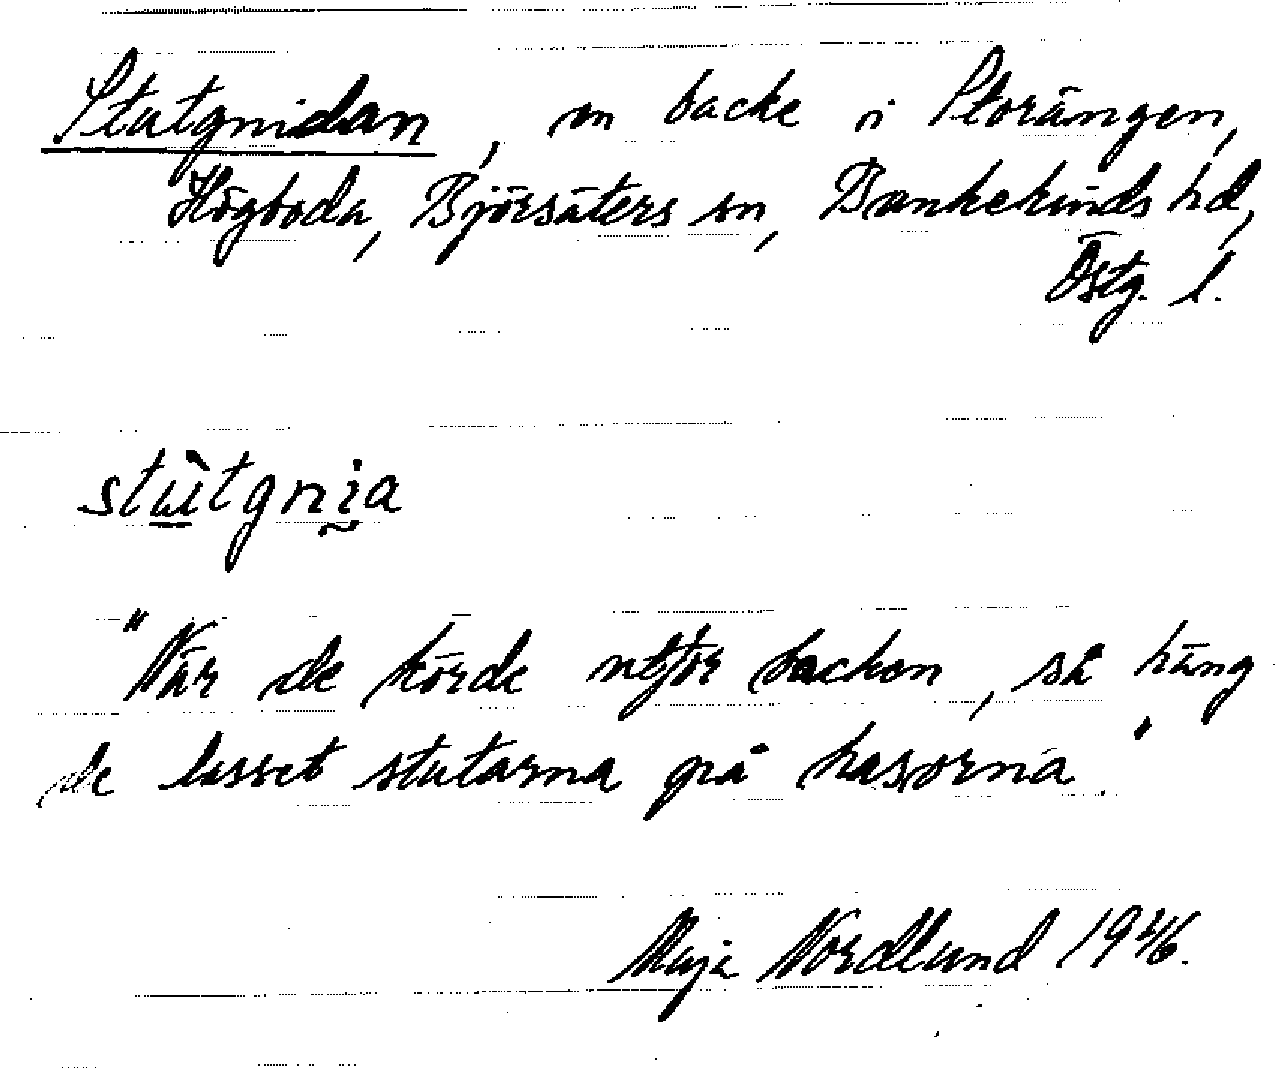 Stutgnidan, en backe i Storängen,
Högboda, Björsäters sn, Bankekinds hd,
Östg. l.
stù̲tgnḭa
"När de körde utför backen, så häng
de lasset stutarna på hasorna."
Maja Nordlund 1946.